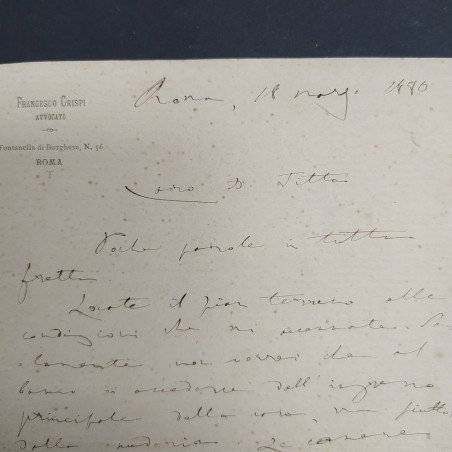 FRANCESCO CRISPI
AVVOCATO
Fontanella di Borghese, N. 36
ROMA
Roma, 18 marzo 1880
Caro D. Titta
Poche parole in tutta
fretta.
Locate il pian terreno alle
condizioni che mi accennate.
lamente, non vorrei che al
banco si accedesse dall'ingresso
principale della casa, ma
dalla Le camere